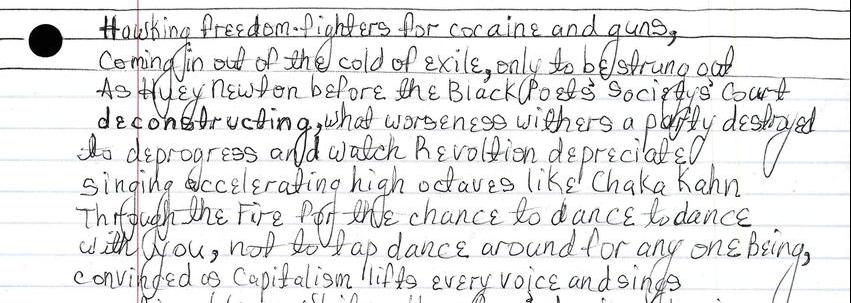 Hawking freedom-fighters for cocaine and guns,
Coming in out of the cold of exile, only to be strung out
As Huey Newton before the Black Poets' Society's Court
deconstructing, what worseness withers a party destroyed
to deprogress and watch Revoltion depreciated
singing accelerating high octaves like Chaka Kahn
Through the Fire for the chance to dance to dance
with you, not to tap dance around for any one Being,
convinced as Capitalism lifts every voice and sings